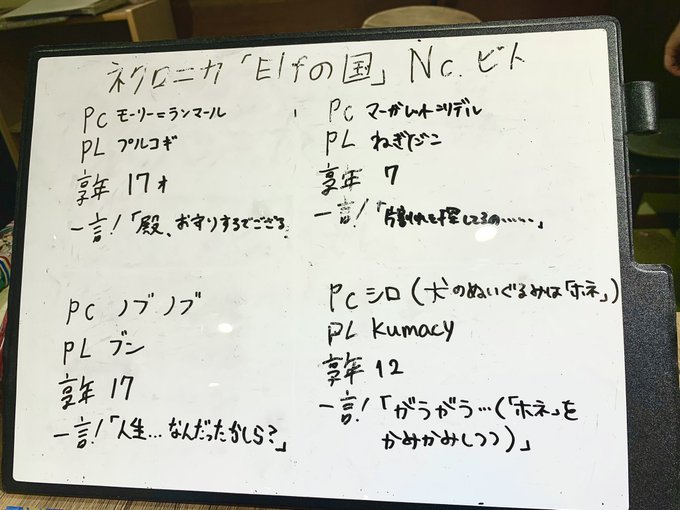 ネクロニカ「Elfの国」Nc. ビト
PC モーリー=ランマール
PL プルコギ
享年 17才
一言!「殿、お守りするでござる
PC マーガレット=リデル
PL ねぎだこ
享年 7
一言!「片割れを探してるの……」
PC ノブノブ
PL ブン
享年 17
一言!「人生…なんだったかしら?」
PC シロ(犬のぬいぐるみは「ホネ」)
PL Kumacy
享年 12
一言!「がうがう…(「ホネ」を
かみかみしつつ)」